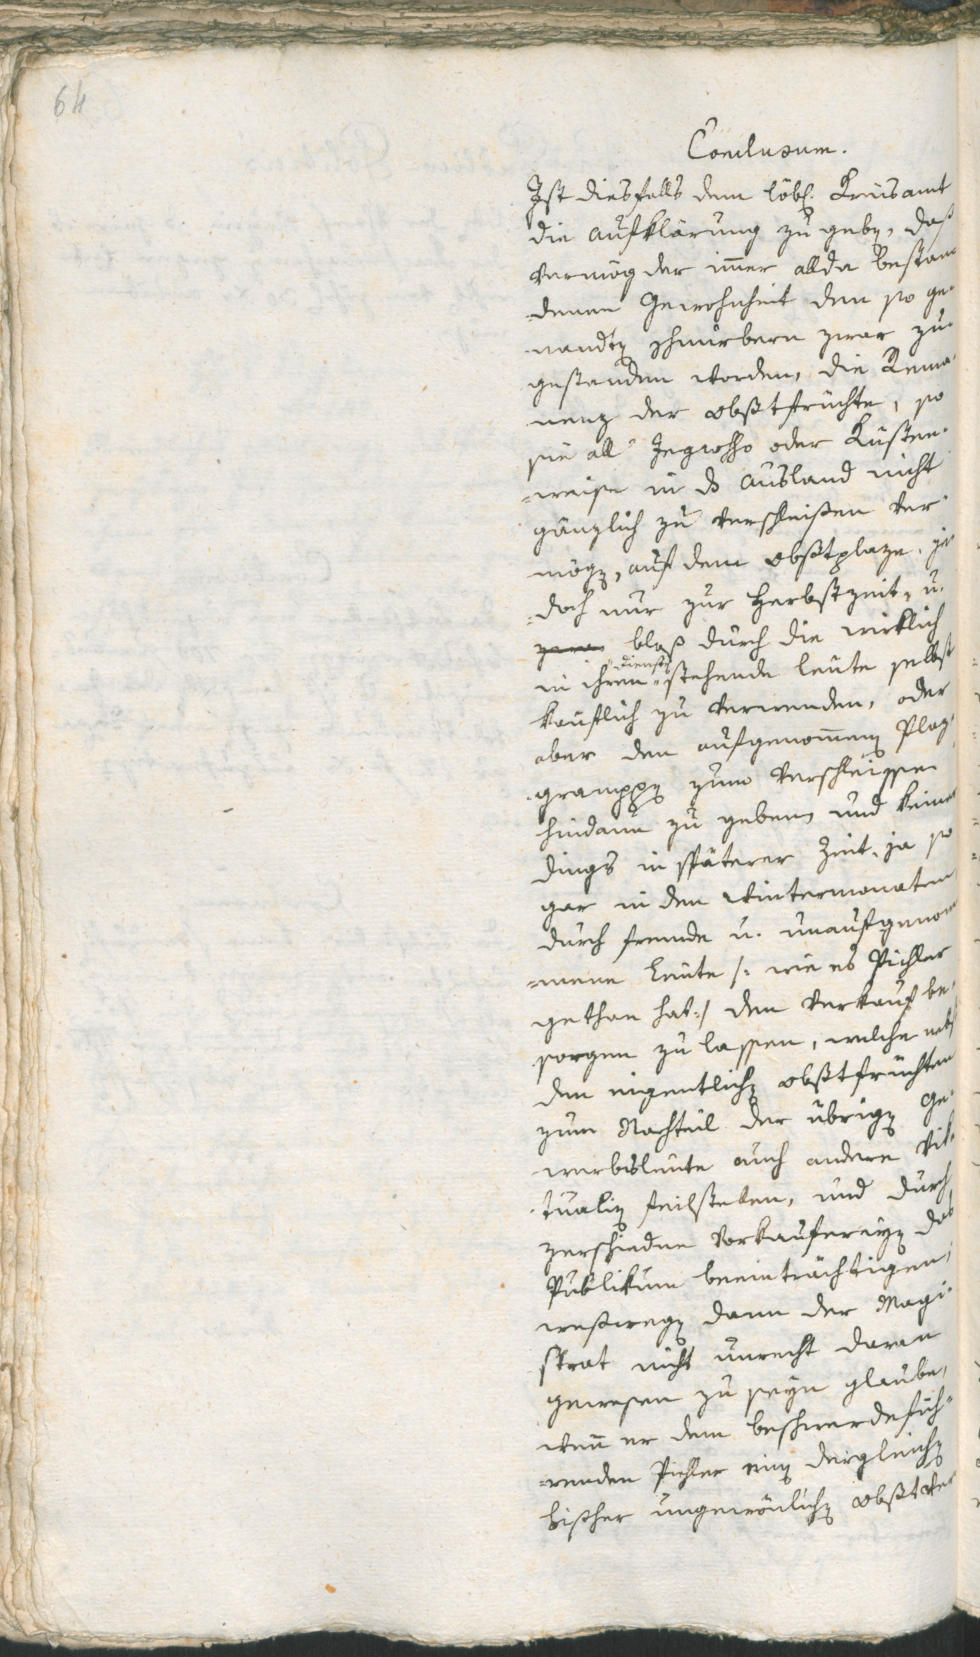 64
Conclusum.
Ist diesfalls dem löbl. Kreisamt
die Aufklärung zu gebn, daß
vermög der imer allda bestan¬
denen Gewohnheit den so ge¬
nandtn zwar zu¬
gestanden worden, die Rema¬
nenz der obstfrüchte, so
sie all' Ingrosso oder Kisten¬
weise in ds Ausland nicht
gänzlich zu verschleißen ver¬
mögn, auf dem obstplaze, je¬
doch nur zur Herbstzeit, u.
blos durch die wirklich
in ihren diensten stehende leute selbst
käuflich zu verwenden, oder
aber den aufgenomenen Plaz¬
zum verschleissen
hindann zu geben, und keiner
dings in späterer Zeit, ja so
gar in den Wintermonaten
durch fremde u. unaufgenom¬
mene Leute /: wie es Pichler
gethan hat :/ den verkauf be¬
sorgen zu lassen, welche nebst
den eigentlichn obstfrüchten
zum Nachteil der übrign Ge¬
werbsleute auch andere Vik¬
tualin feilstellen, und durch
verschiedne Vorkaufereyn das
Publikum beeinträchtigen,
weßwegn dann der Magi¬
strat nicht unrecht daran
gewesen zu seyn glaube,
wen er dem beschwerdefüh¬
renden Pichler einn dergleichn
bisher ungewönlichn obstver